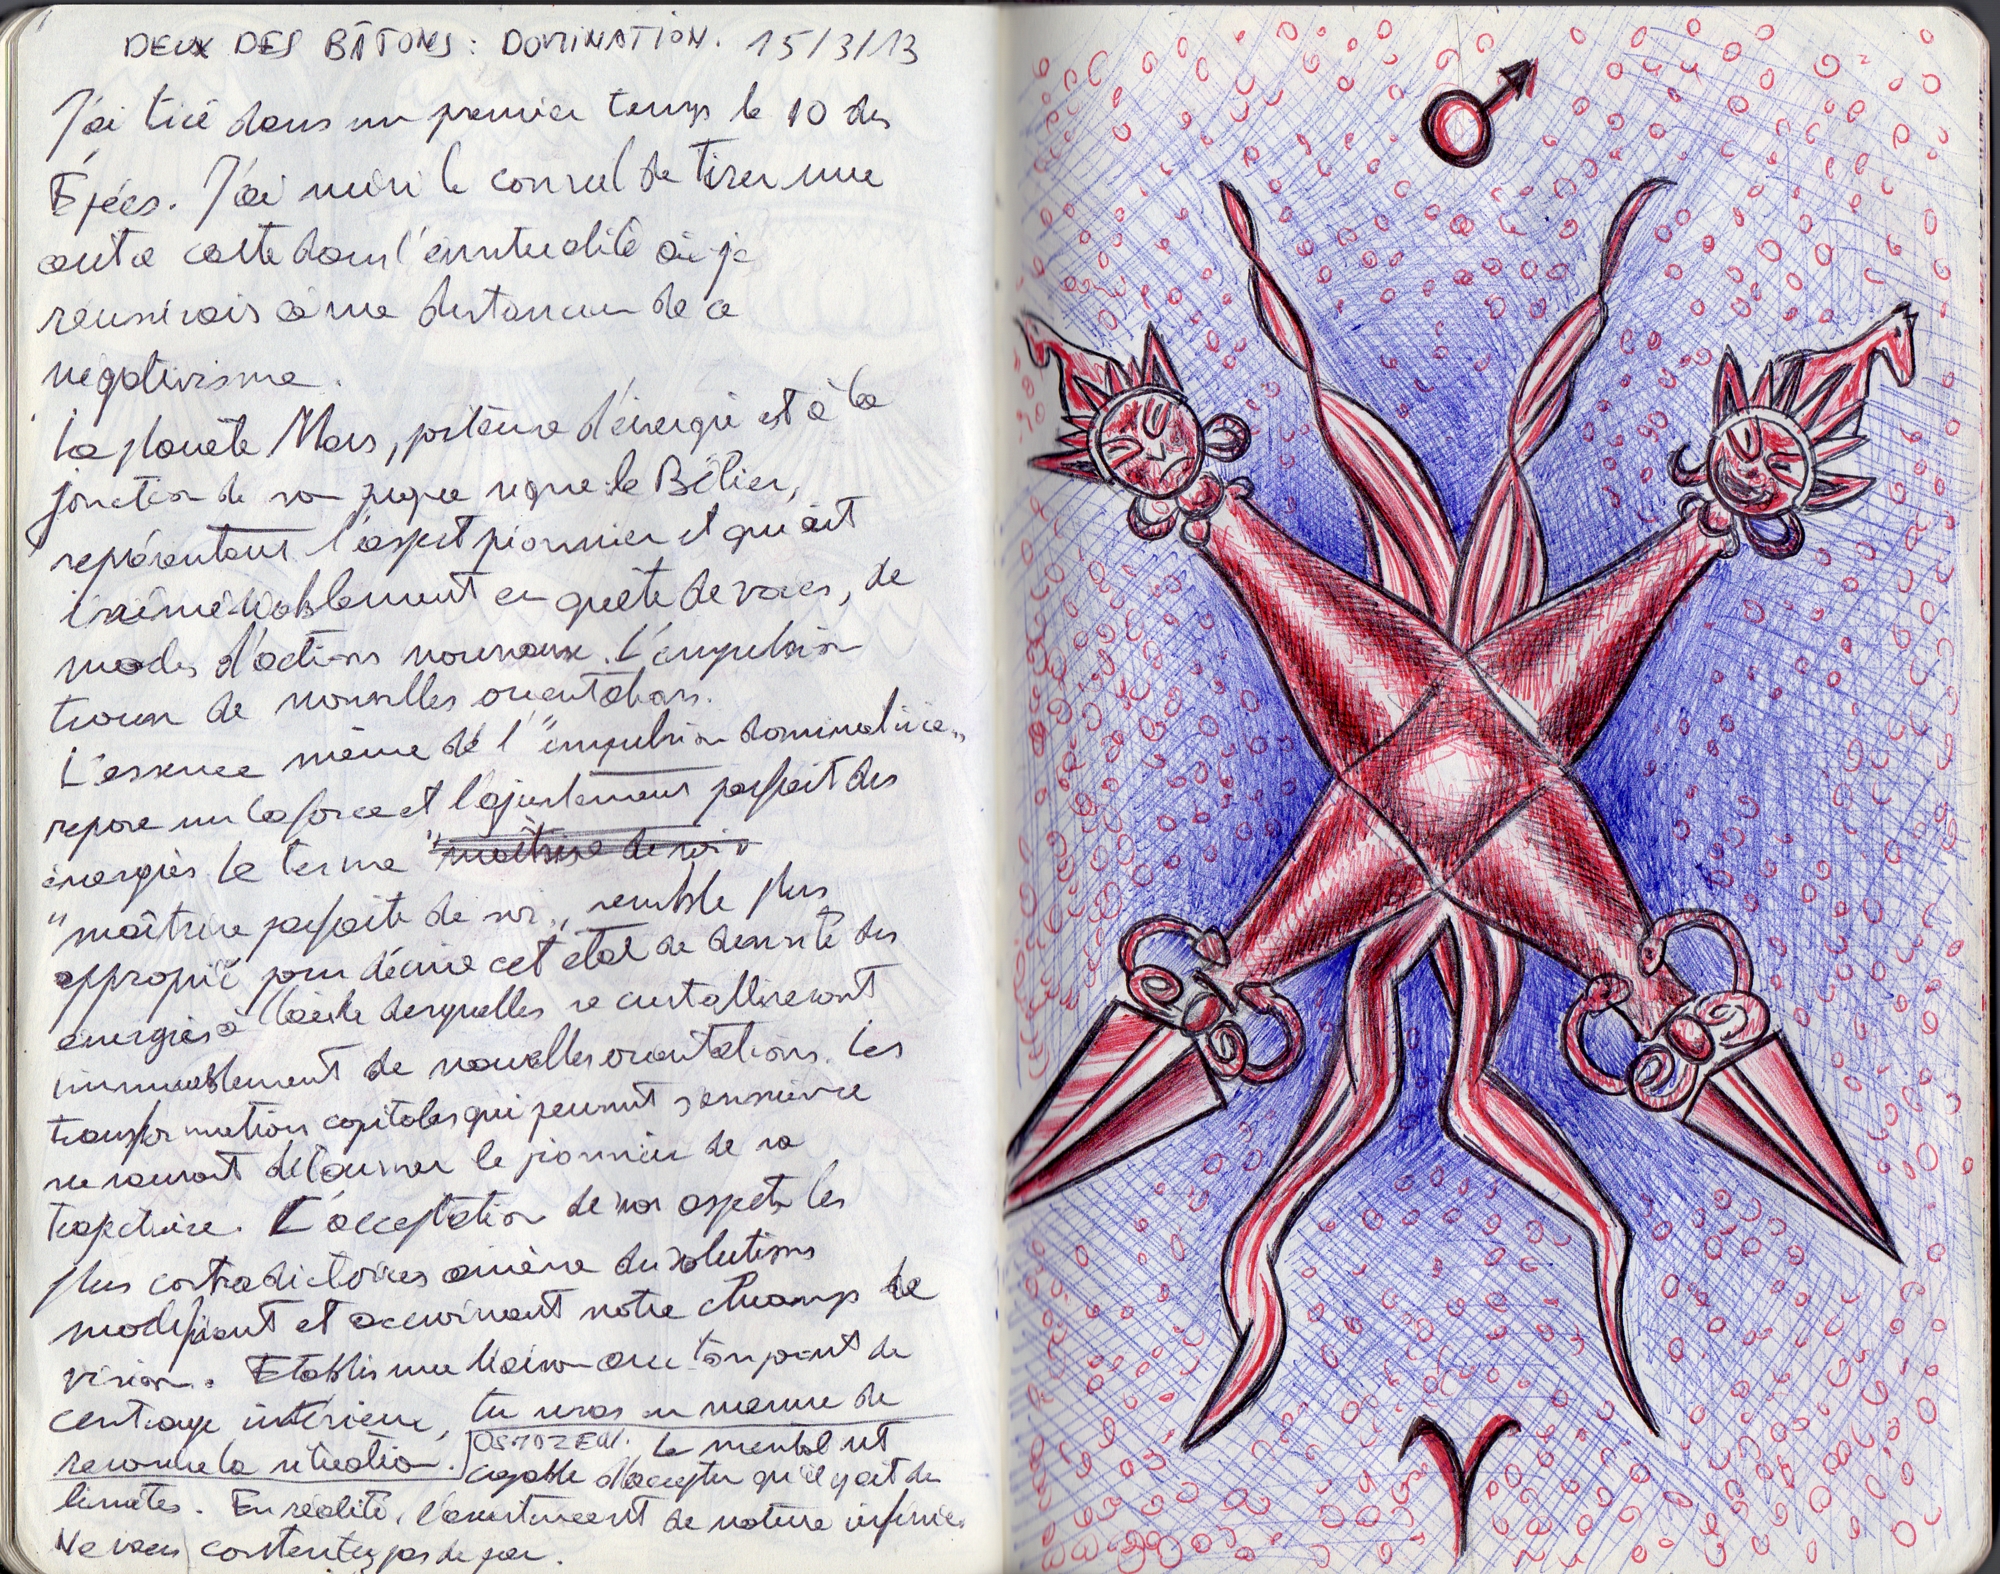 DEUX DES BÂTONS : DOMINATION. 15/3/13
J'ai tiré dans un premier temps le 10 des
Épées. J'ai suivi le conseil de tirer une
autre carte dans l'éventualité où je
réussirais à me distancier de ce
négativisme.
La planète Mars, porteuse d'énergie est à la
jonction de son propre signe le Bélier,
représentant l'aspect pionnier et qui est
irrémédiablement en quête de voies, de
modes d'actions nouveaux. L'impulsion
trouve de nouvelles orientations.
L'essence même de l'"impulsion dominatrice"
repose sur la force et l'ajustement parfait des
énergies le terme "maîtrise de soi"
"maîtrise parfaite de soi" semble plus
approprié pour décrire cet état de densité des
énergies à l'aide desquelles se cristalliseront
immuablement de nouvelles orientations. Les
transformations capitales qui peuvent s'ensuivre
ne sauront détourner le pionnier de sa
trajectoire. L'acceptation de nos aspects les
plus contradictoires amène des solutions
modifiant et accroissant notre champ de
vision. Etablis une liaison avec ton point de
centrage intérieur, tu seras en mesure de
résoudre la situation. OSTOZEUL. Le mental est
capable d'accepter qu'il y ait des
limites. En réalité, l'avertissement de nature infinie.
Ne vous contentez pas de peu.